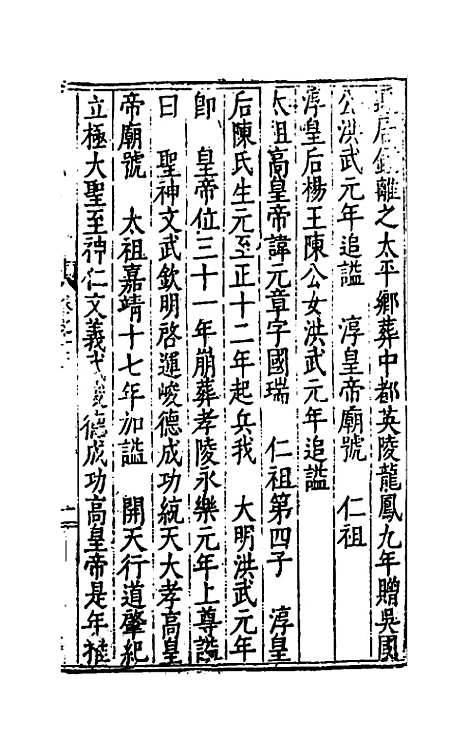 居鍾離之太平鄉葬中都英陵龍鳳九年贈吳國
公洪武元年追謚　淳皇帝廟號　仁祖
淳皇后楊王陳公女洪武元年追謚
太祖高皇帝諱元章字國瑞　仁祖第四子　淳皇
后陳氏生元至正十二年起兵我　大明洪武元年
卽　皇帝位三十一年崩葬孝陵永樂元年上尊謚
曰　聖神文武欽明啓運峻德成功統天大孝高皇
帝廟號　太祖嘉靖十七年加謚　開天行道肇紀
立極大聖至神仁文義武俊德成功高皇帝是年推